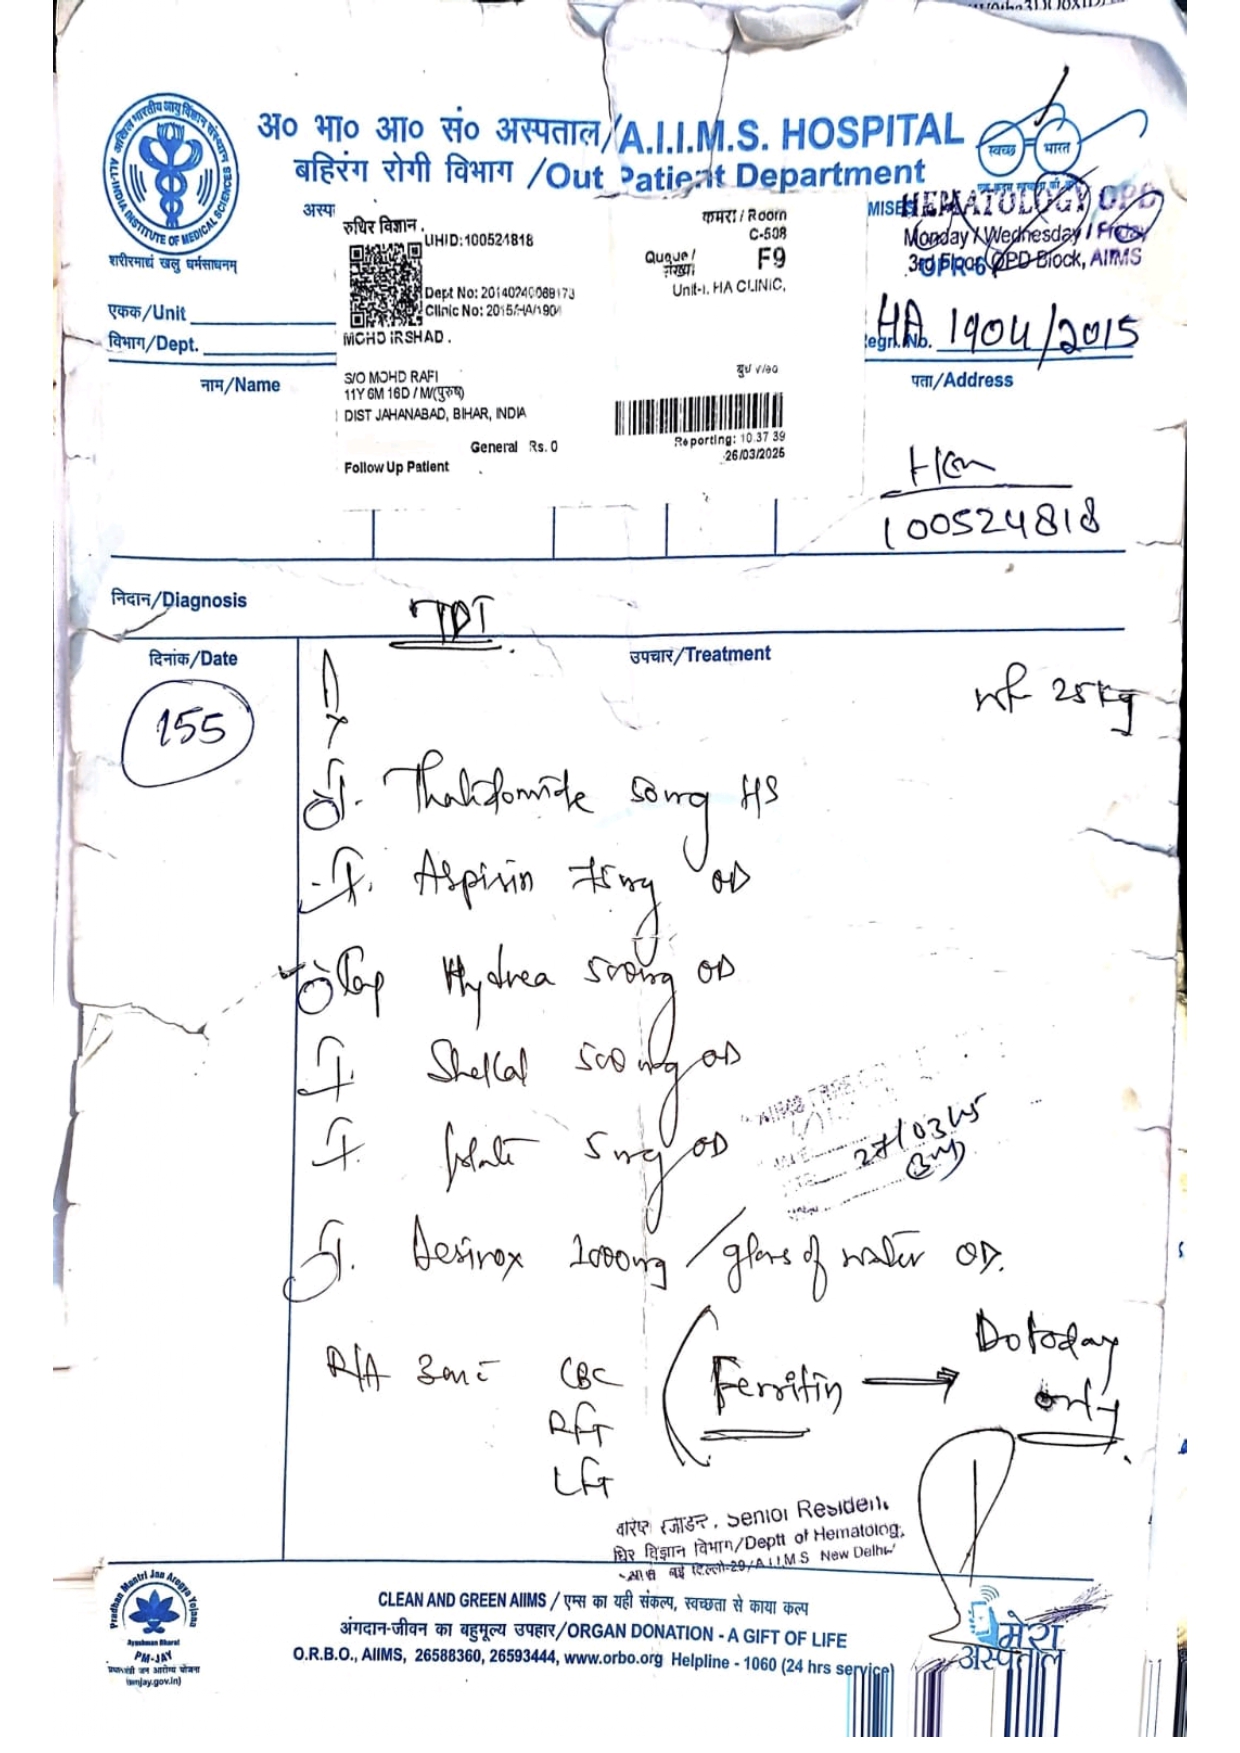 अ० भा० आ० सं० अस्पताल/A.I.I.M.S. HOSPITAL
बहिरंग रोगी विभाग /Out Patient Department
ALL-INDIA INSTITUTE OF MEDICAL SCIENCES
शरीरमाद्यं खलु धर्मसाधनम्
स्वच्छ भारत
HEMATOLOGY OPD
Monday / Wednesday / Friday
3rd Floor, OPD Block, AIIMS
OPR-6
रुधिर विज्ञान
UHID:100524818
Dept No: 20140240068173
Clinic No: 2015/HA/1904
MOHD IRSHAD .
S/O MOHD RAFI
11Y 6M 16D / M(पुरुष)
DIST JAHANABAD, BIHAR, INDIA
General Rs. 0
Follow Up Patient
कमरा / Room
C-508
F9
Unit-I, HA CLINIC,
Reporting: 10.37 39
26/03/2025
एकक/Unit
विभाग/Dept.
HA 1904/2015
नाम/Name
पता/Address
100524818
निदान/Diagnosis
TDT
दिनांक/Date
उपचार/Treatment
155
wt 25kg
T. Thalidomide 50mg HS
T. Aspirin 75mg OD
Cap Hydrea 500mg OD
T. Shelcal 500mg OD
T. folate 5mg OD
T. Desirox 1000mg / glass of water OD.
27/03/25
R/A 3m CBC
RFT
LFT
Ferritin → Do today only
Senior Resident
विज्ञान विभाग/Deptt of Hematolog,
A.I.I.M.S New Delhi
Pradhan Mantri Jan Arogya Yojana
Ayushman Bharat
PM-JAY
प्रधानमंत्री जन आरोग्य योजना
(pmjay.gov.in)
CLEAN AND GREEN AIIMS / एम्स का यही संकल्प, स्वच्छता से काया कल्प
अंगदान-जीवन का बहुमूल्य उपहार/ORGAN DONATION - A GIFT OF LIFE
O.R.B.O., AIIMS, 26588360, 26593444, www.orbo.org Helpline - 1060 (24 hrs service)
मेरा
अस्पताल